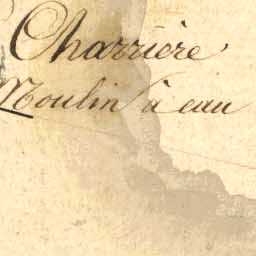 Charrière
Moulin à eau